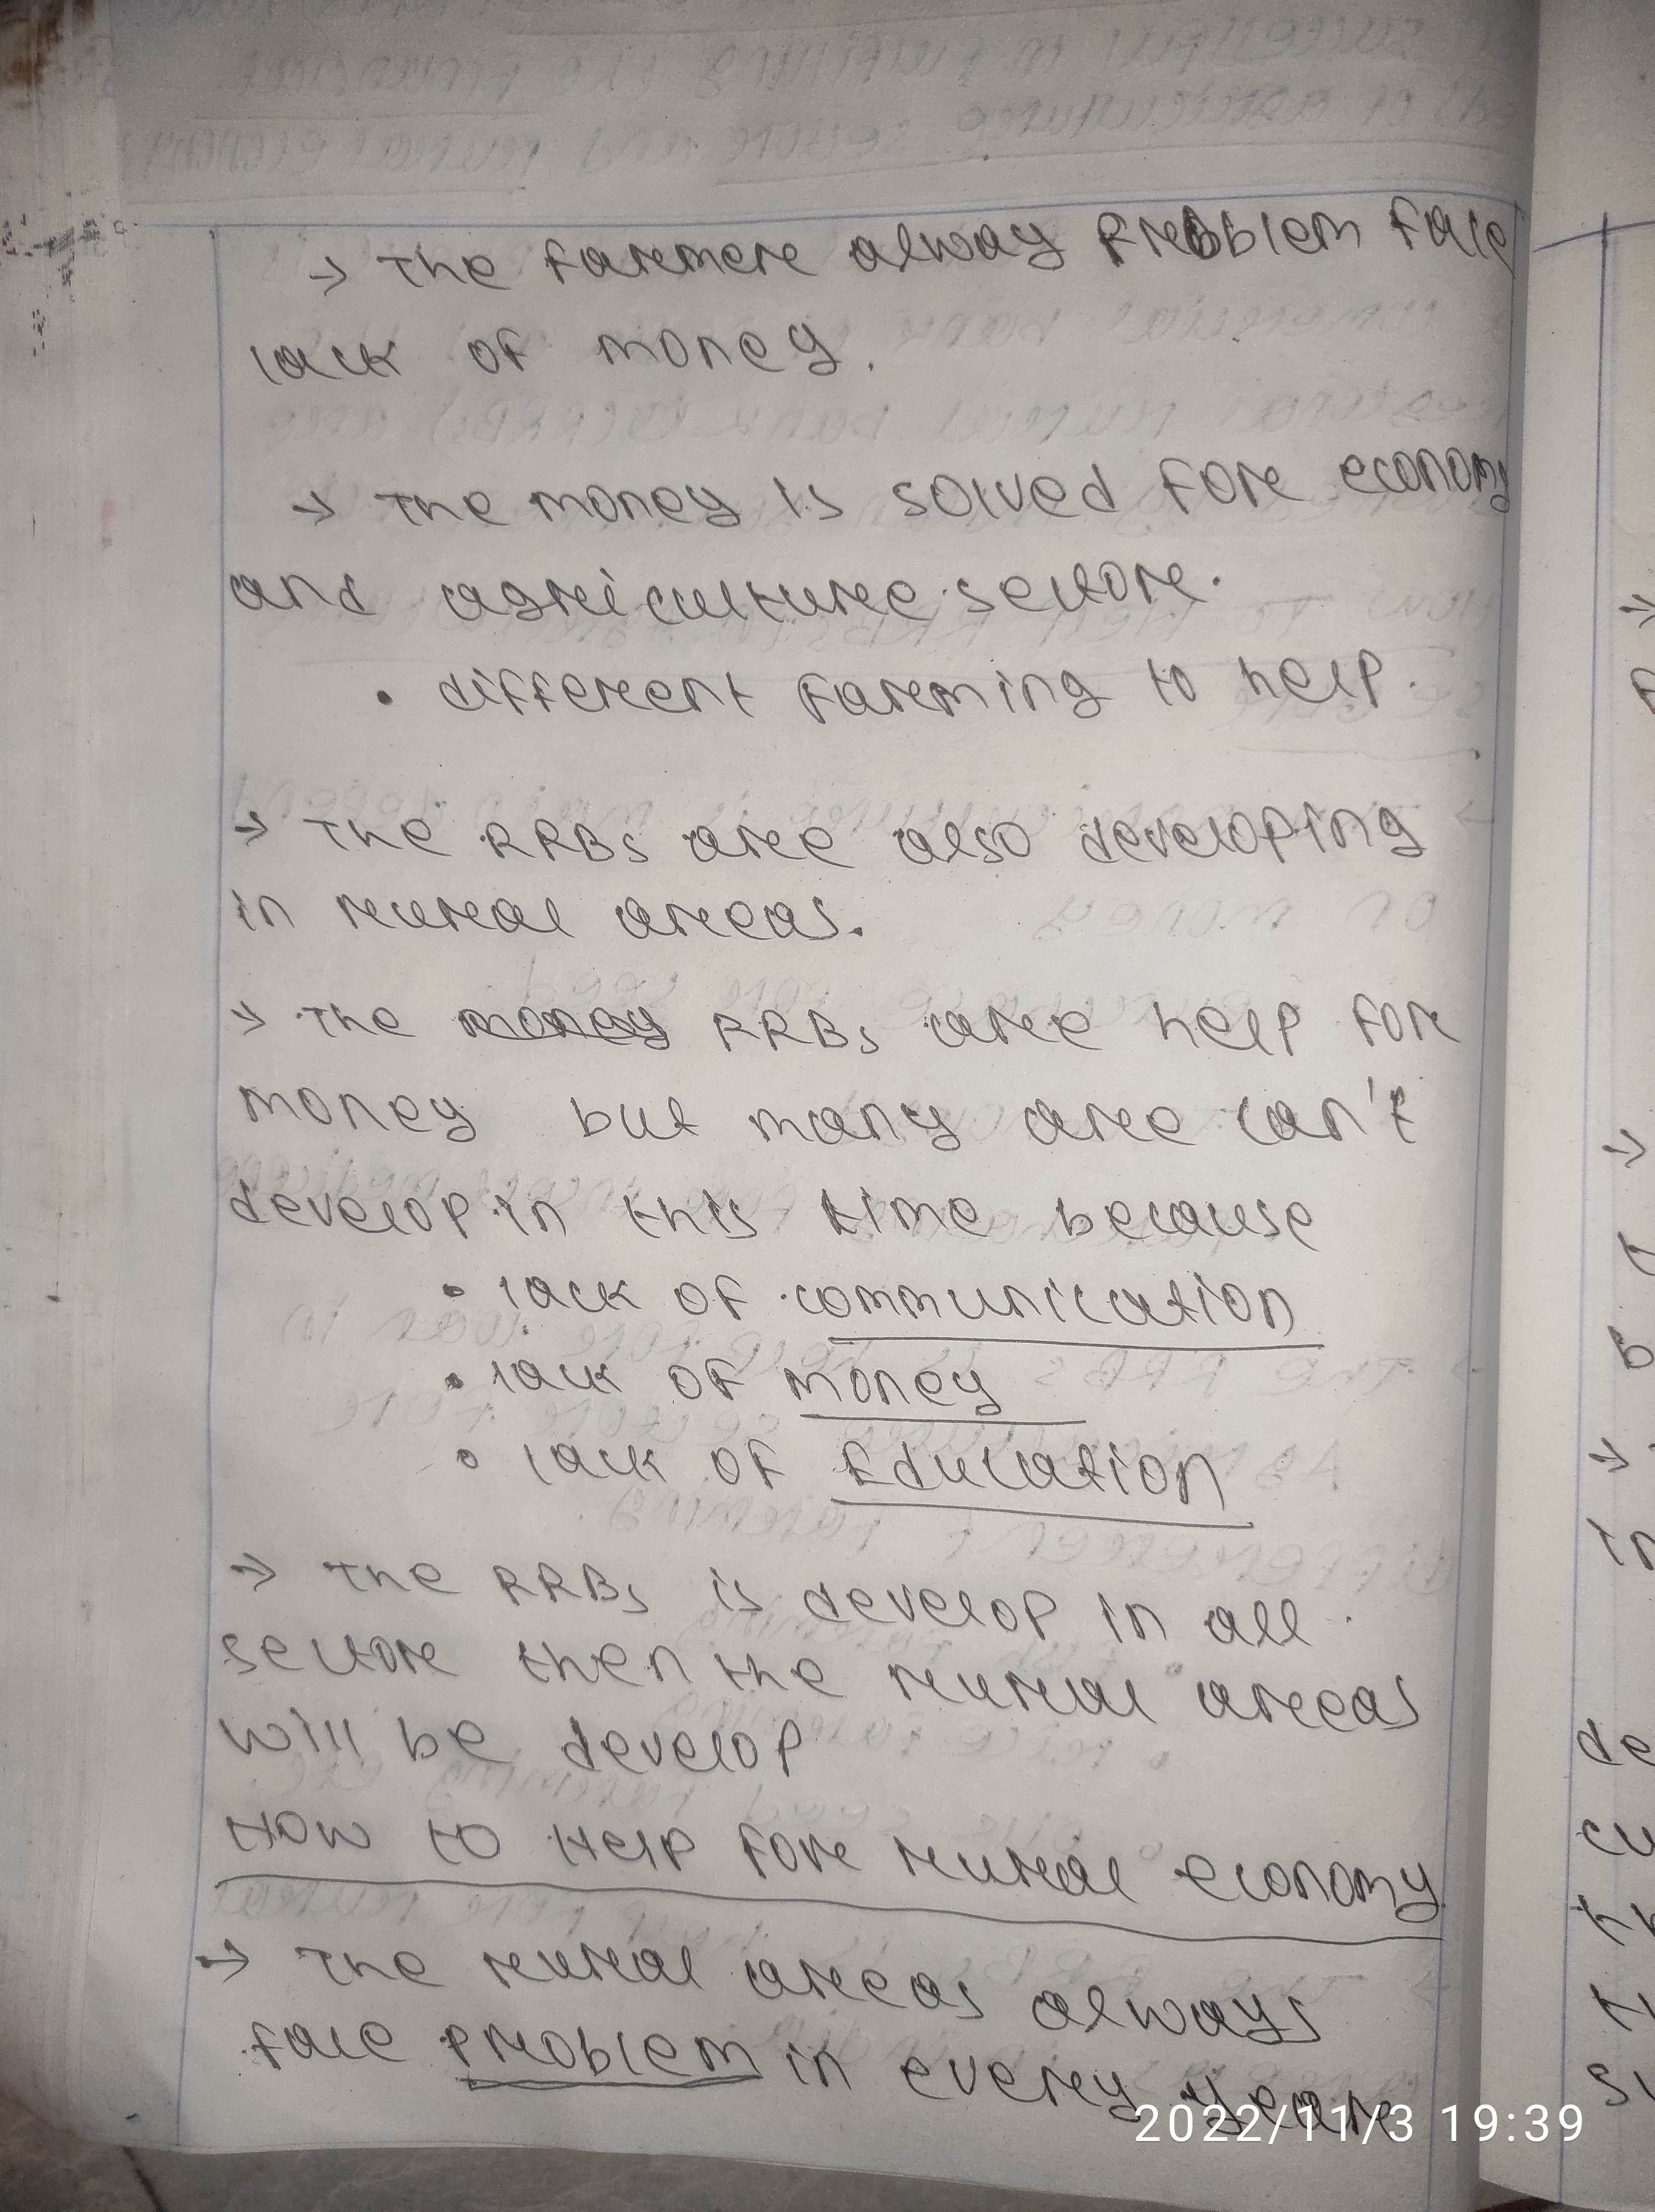 → The farmer alway Problem face
lack of money.
→ The money is solved for economy
and agriculture sector.
• different farming to help.
→ The RRBs are also developing
in rural areas.
→ The money RRBs are help for
money but many are can't
develop in this time because
• lack of communication
• lack of money
• lack of Education
→ The RRBs is develop in all
sector then the rural areas
will be develop
How to Help for rural economy
→ The rural areas always
face problem in every year
2022/11/3 19:39